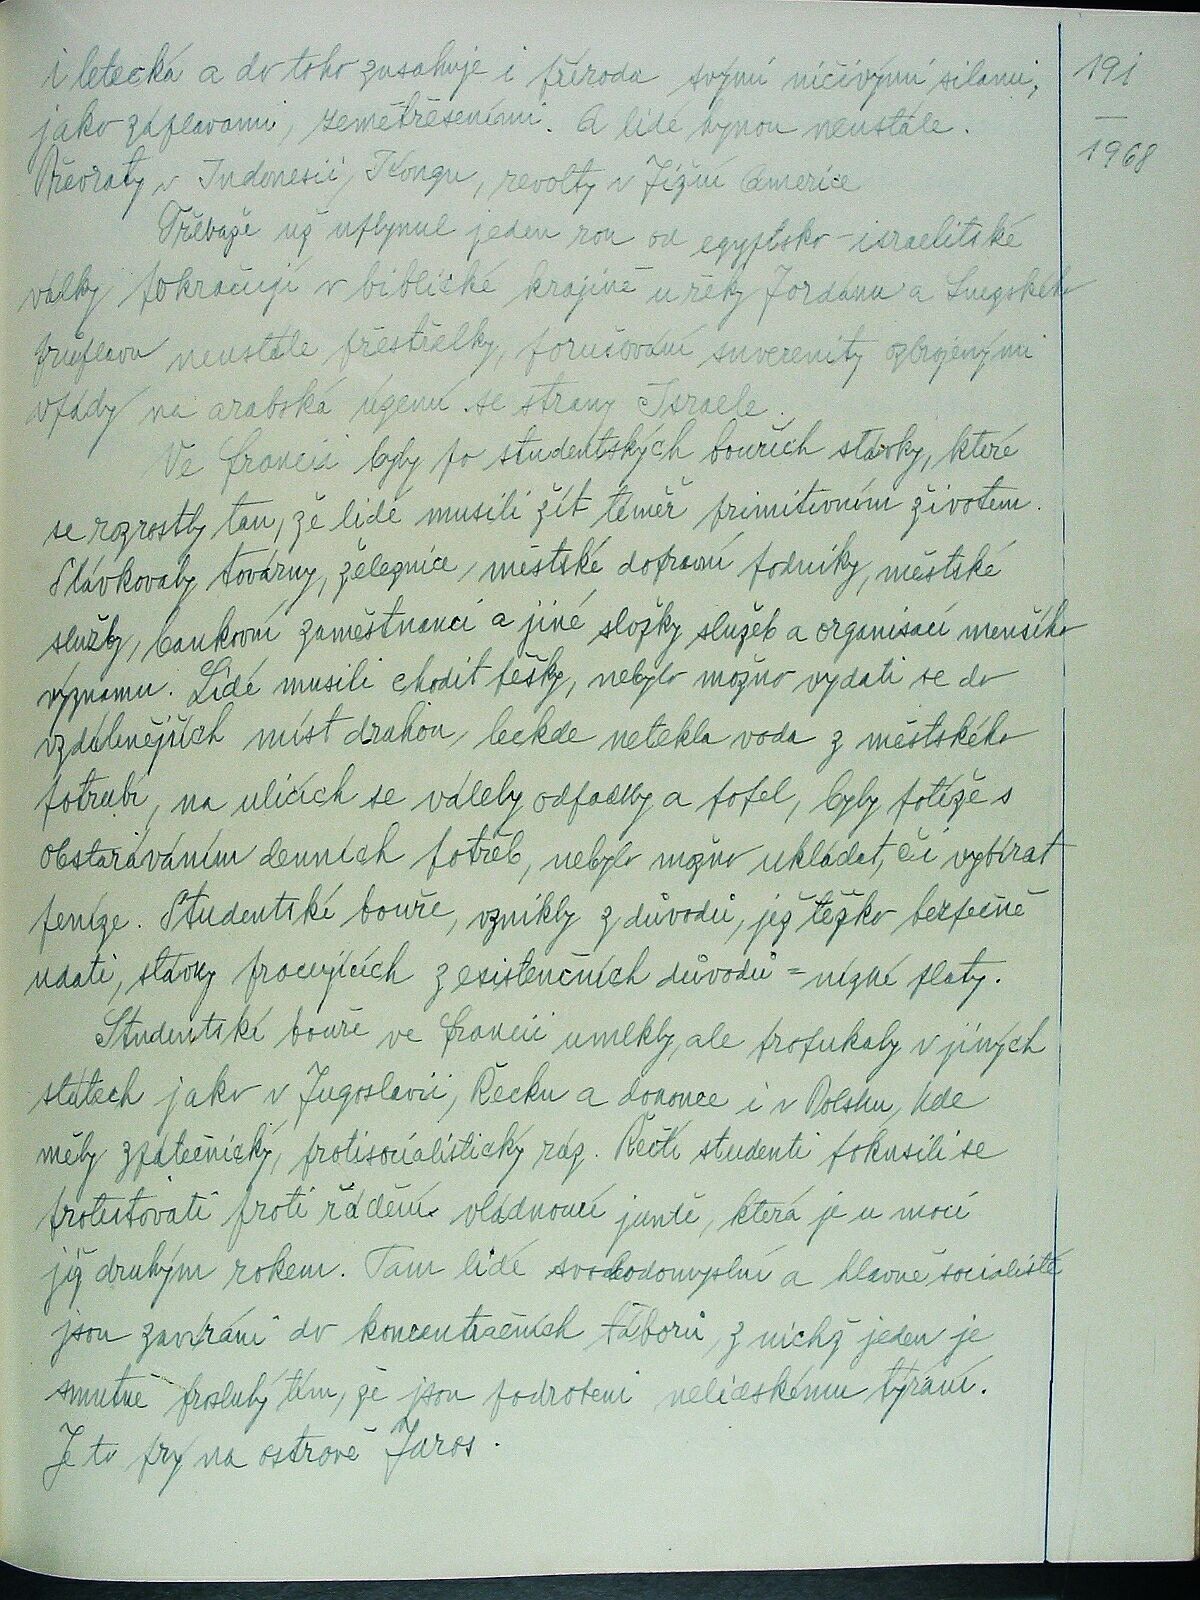 i letecká a do toho zasahuje i příroda svými ničivými silami,
jako záplavami, zemětřeseními. A lidé hynou neustále.
Převraty v Indonesii, Kongu, revolty v Jižní Americe
Třebaže už uplynul jeden rok od egyptsko-israelitské
války pokračují v biblické krajině u řeky Jordánu a Suezského
průplavu neustále přestřelky, porušování suverenity ozbrojenými
vpády na arabská území se strany Israele.
Ve Francii byly po studentských bouřích stávky, které
se rozrostly tak, že lidé musili žít téměř primitivním životem.
Stávkovaly továrny, železnice, městské dopravní podniky, městské
služby, bankovní zaměstnanci a jiné složky služeb a organisací menšího
významu. Lidé musili chodit pěšky, nebylo možno vydati se do
vzdálenějších míst drahou, leckde netekla voda z městského
potrubí, na ulicích se válely odpadky a popel, byly potíže s
obstaráváním denních potřeb, nebylo možno ukládat, či vybírat
peníze. Studentské bouře, vznikly z důvodů, jež těžko bezpečně
udati, stávky pracujících z existenčních důvodů = nízké platy.
Studentské bouře ve Francii umlkly, ale propukaly v jiných
státech jako v Jugoslavii, Řecku a dokonce i v Polsku, kde
měly zpátečnický, protisocialistický ráz. Řečtí studenti pokusili se
protestovati proti řádění vládnoucí juntě, která je u moci
již druhým rokem. Tam lidé svobodomyslní a hlavně socialisté
jsou zavíráni do koncentračních táborů, z nichž jeden je
smutně prosluhý tím, že jsou podrobeni nelidskému týrání.
Je to prý na ostrově Jaros.
191
—
1968